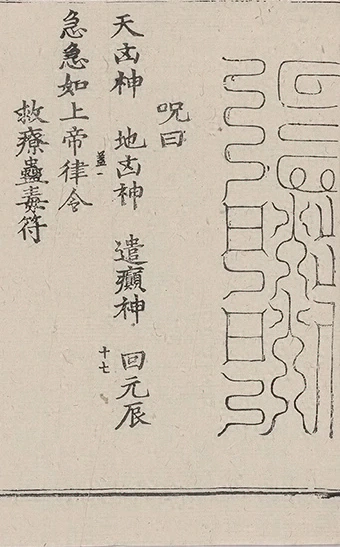 呪曰
天凶神　地凶神　遣癲神　回元辰
急急如上帝律令
蓋一
十七
救療蠱毒符